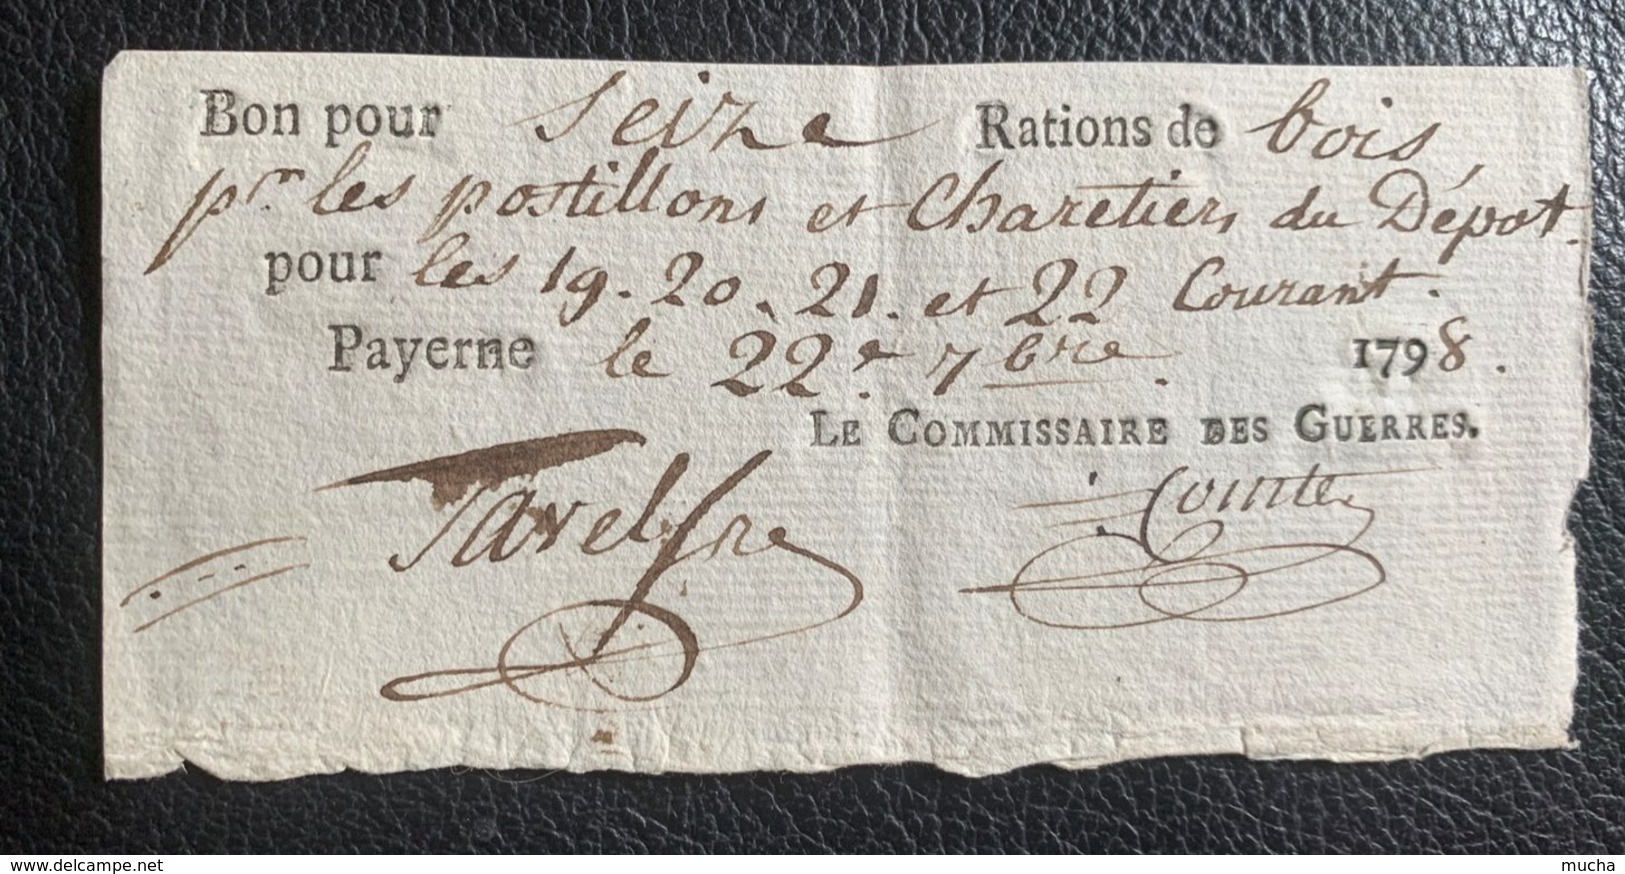 Bon pour seize Rations de bois
pr. les postillons et Charetiers du Dépot.
pour les 19. 20. 21. et 22 Courant.
Payerne le 22e. 7bre. 1798.
LE COMMISSAIRE DES GUERRES.
Comte
Tavel
www.delcampe.net
mucha